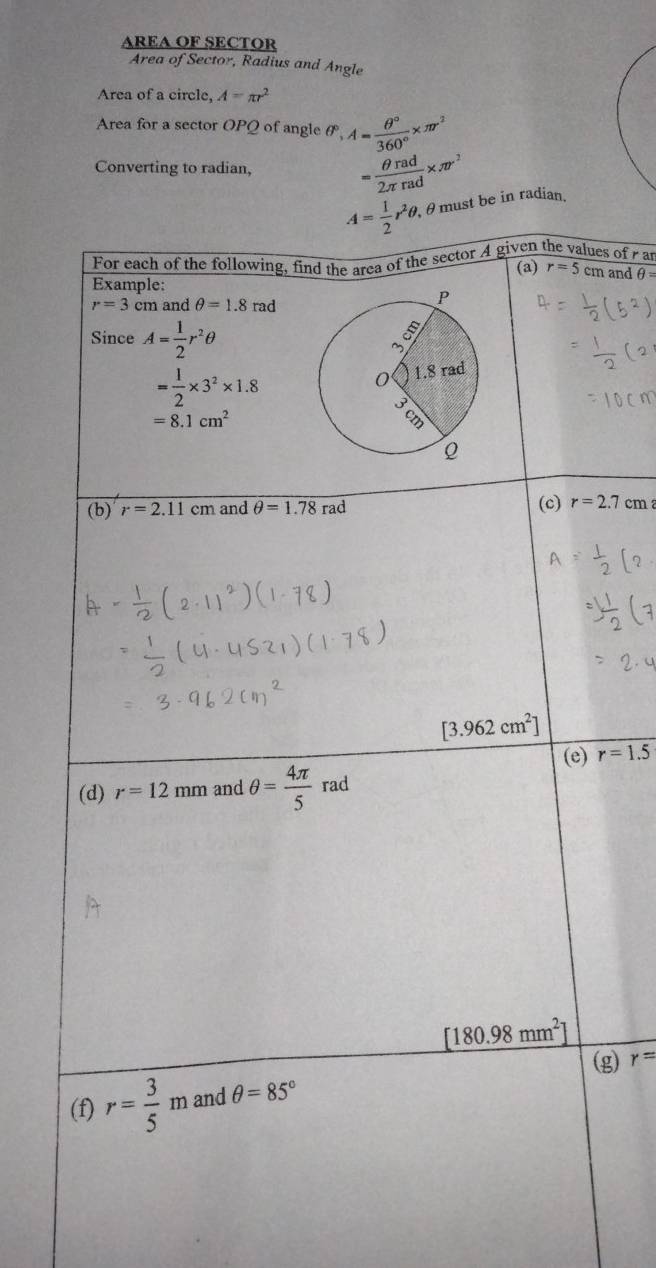 AREA OF SECTOR
Area of Sector, Radius and Angle
Area of a circle, A = πr²
Area for a sector OPQ of angle θ°, A = θ°/360° × πr²
Converting to radian, = θ rad/2π rad × πr²
A = 1/2 r²θ, θ must be in radian.
For each of the following, find the area of the sector A given the values of r an
Example:
r = 3 cm and θ = 1.8 rad
Since A = 1/2 r²θ
= 1/2 × 3² × 1.8
= 8.1 cm²
P
3 cm
O 1.8 rad
3 cm
Q
(a) r = 5 cm and θ =
A = 1/2 (5²)
= 1/2 (2
= 10 cm
(b) r = 2.11 cm and θ = 1.78 rad
A = 1/2 (2.11²)(1.78)
= 1/2 (4.4521)(1.78)
= 3.962 cm²
[3.962 cm²]
(c) r = 2.7 cm
A = 1/2 (2.
= 1/2 (7
= 2.4
(d) r = 12 mm and θ = 4π/5 rad
A
[180.98 mm²]
(e) r = 1.5
(f) r = 3/5 m and θ = 85°
(g) r =